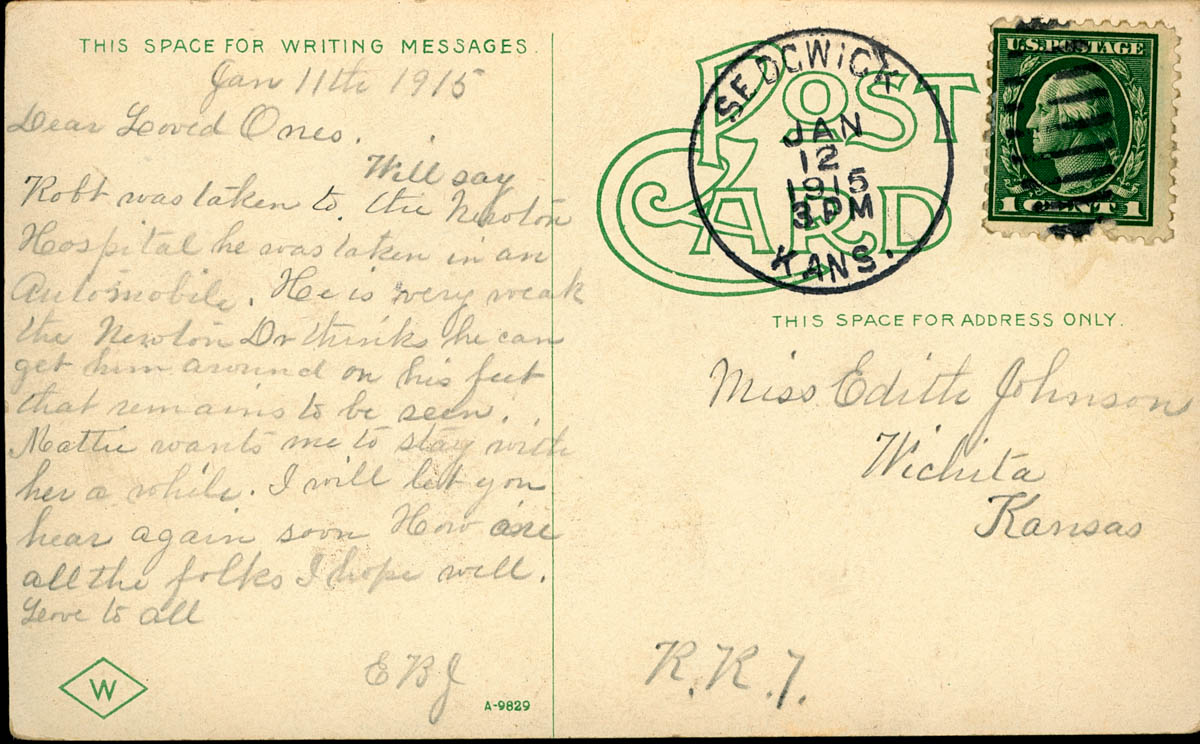 THIS SPACE FOR WRITING MESSAGES.
Jan 11th 1915
Dear Loved Ones.
Will say
Robt was taken to the Newton
Hospital he was taken in an
Automobile. He is very weak
the Newton Dr thinks he can
get him around on his feet
that remains to be seen.
Mattie wants me to stay with
her a while. I will let you
hear again soon How are
all the folks I hope well.
Love to all
E B J
W
A-9829
POST
CARD
SEDGWICK
JAN
12
1915
3 PM
KANS.
U.S. POSTAGE
1 CENT 1
THIS SPACE FOR ADDRESS ONLY.
Miss Edith Johnson
Wichita
Kansas
R.R.7.